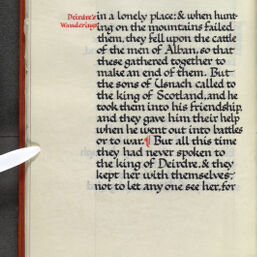 Deirdre's
Wanderings
in a lonely place; & when hunt-
ing on the mountains failed
them, they fell upon the cattle
of the men of Alban, so that
these gathered together to
make an end of them. But
the sons of Usnach called to
the king of Scotland, and he
took them into his friendship,
and they gave him their help
when he went out into battles
or to war. ¶ But all this time
they had never spoken to
the king of Deirdre, & they
kept her with themselves,
not to let any one see her, for